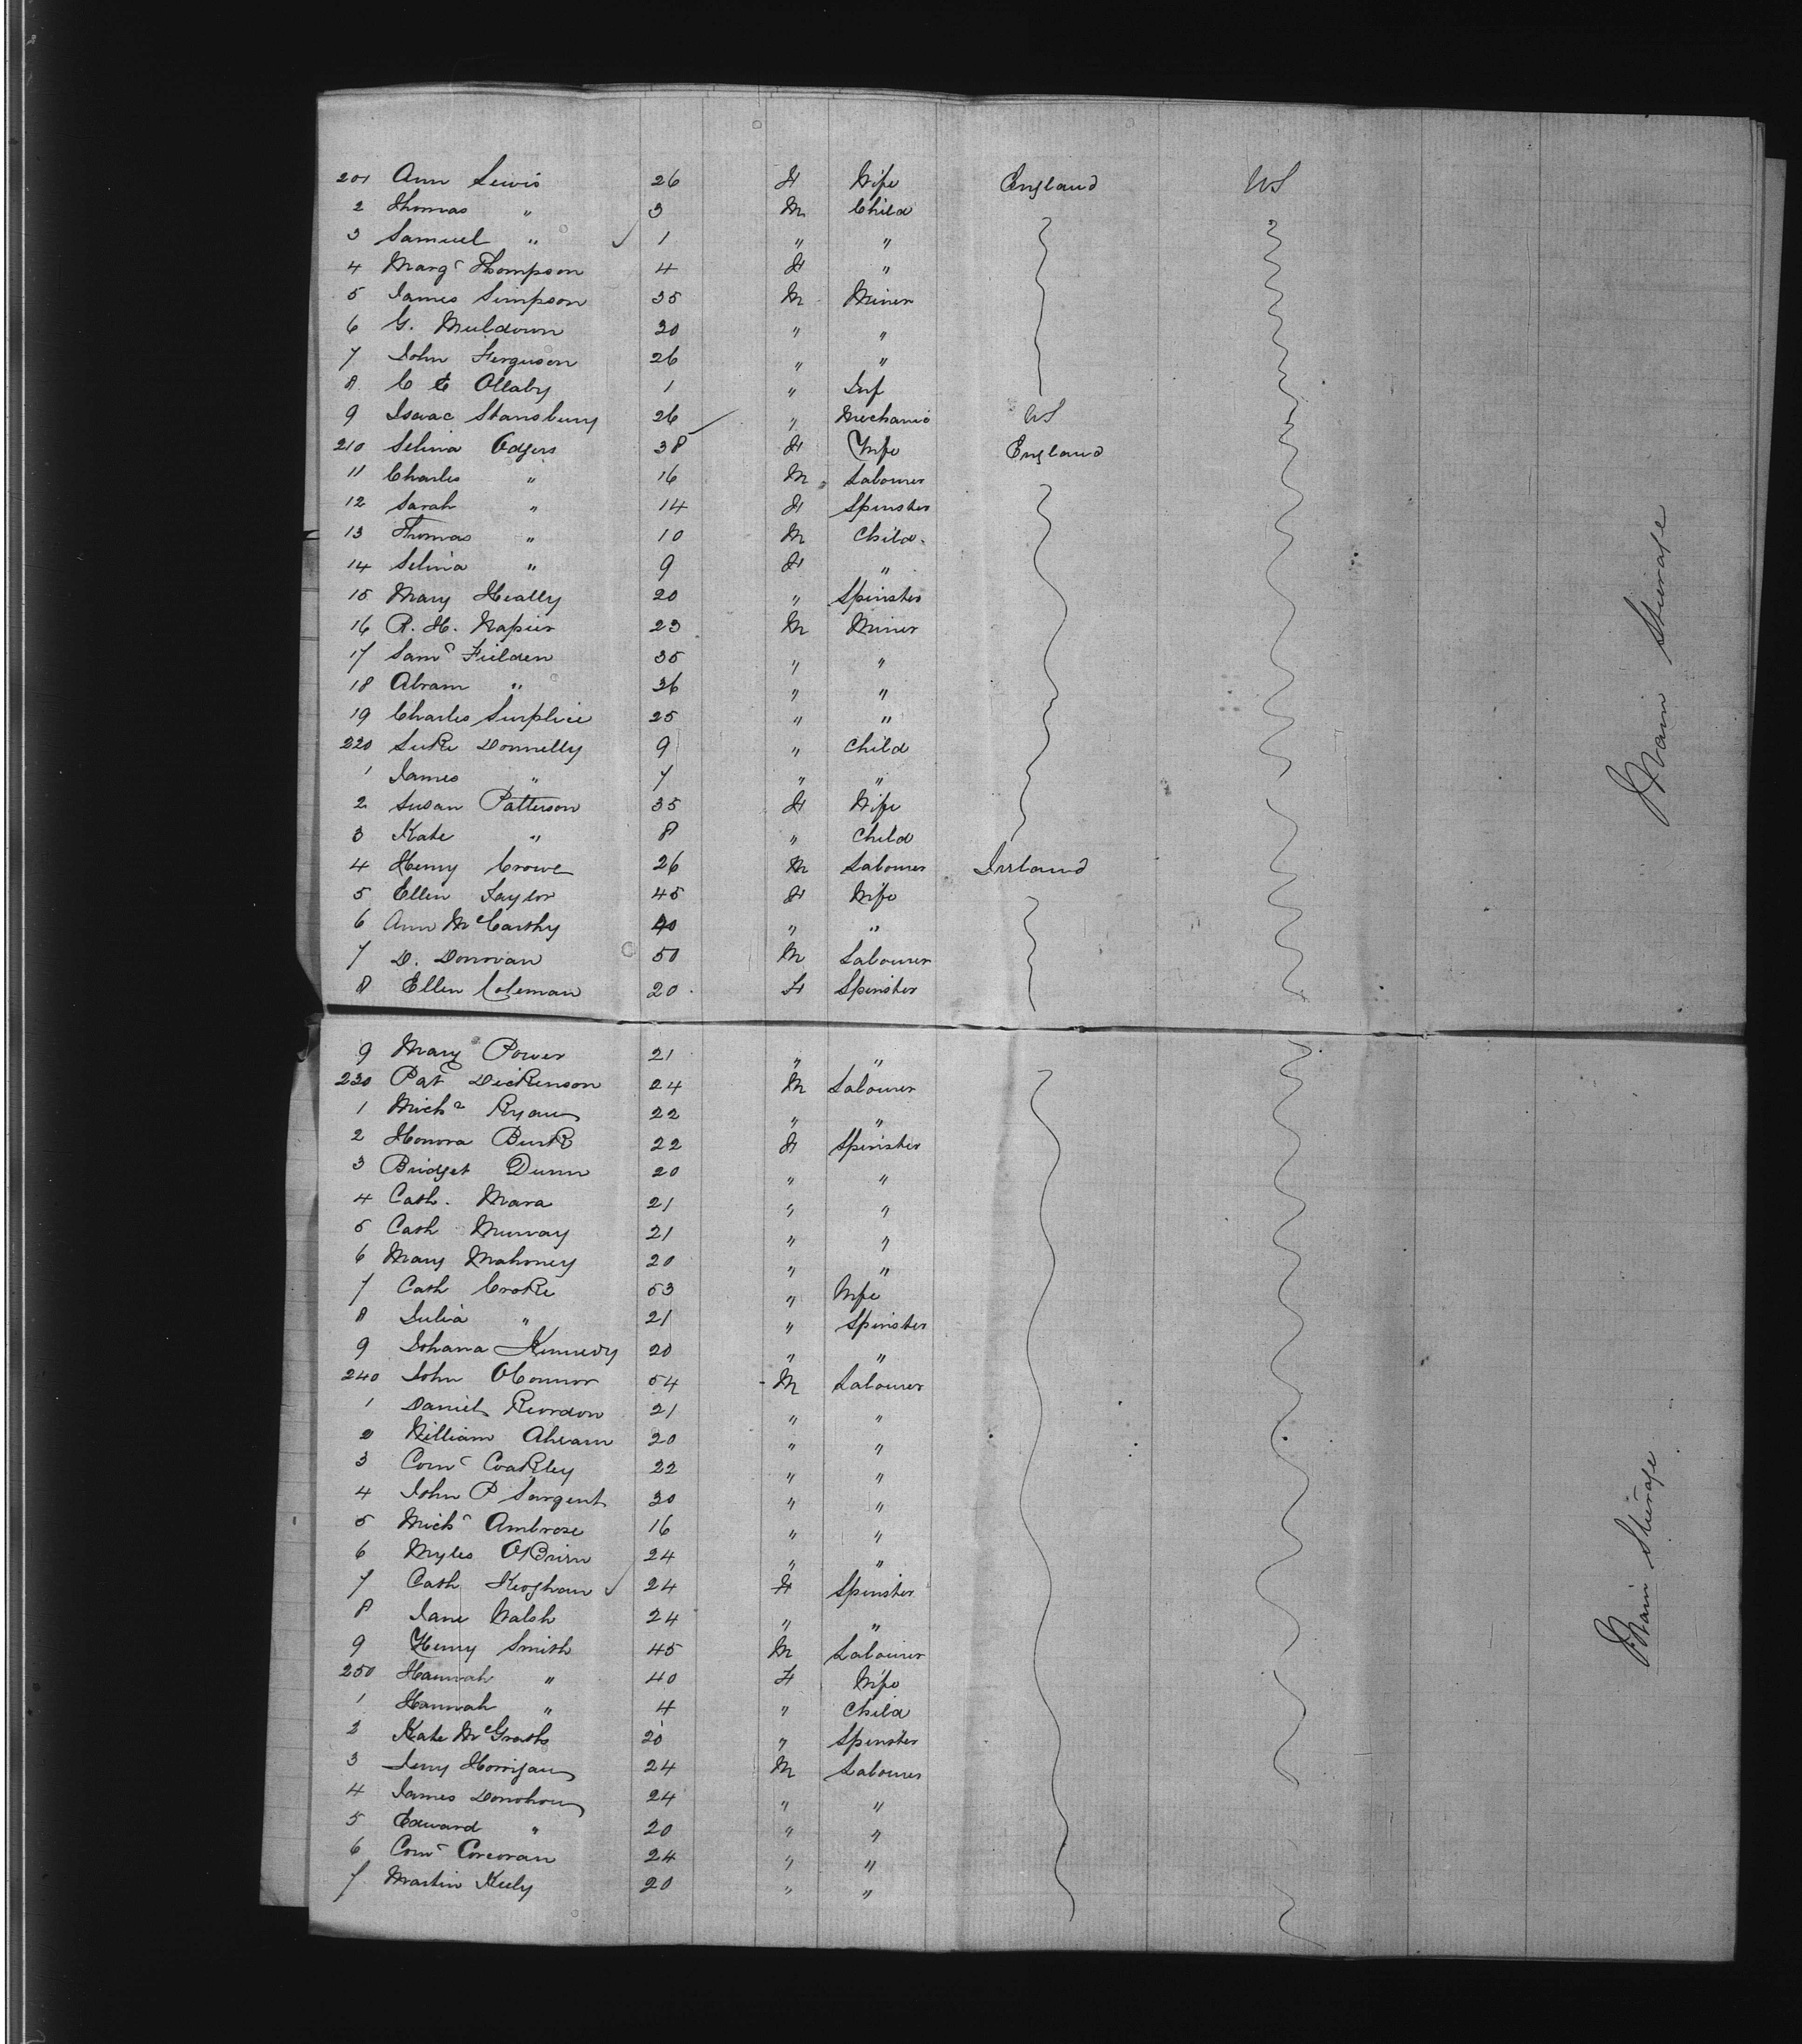 201 Ann Lewis 26 F Wife England US
2 Thomas " 3 M Child
3 Samuel " ✓ 1 " "
4 Margt Thompson 4 F "
5 James Simpson 35 M Miner
6 G. Muldown 20 " "
7 John Ferguson 26 " "
8 C E Ollaby 1 " Inf
9 Isaac Stansbury 26 " Mechanic US
210 Selina Odgers 38 F Wife England
11 Charles " 16 M Labourer
12 Sarah " 14 F Spinster
13 Thomas " 10 M Child
14 Selina " 9 F "
15 Mary Heally 20 " Spinster
16 R. H. Napier 23 M Miner
17 Saml Fielden 35 " "
18 Abram " 36 " "
19 Charles Surplice 25 " "
220 Luke Donnelly 9 " Child
1 James " 7 " "
2 Susan Patterson 35 F Wife
3 Kate " 8 " Child
4 Henry Crowe 26 M Labourer Ireland
5 Ellen Taylor 45 F Wife
6 Ann McCarthy 40 " "
7 D. Donovan 50 M Labourer
8 Ellen Coleman 20 F Spinster
Main Steerage
9 Mary Power 21 " "
230 Pat Dickenson 24 M Labourer
1 Michl Ryan 22 " "
2 Honora Burk 22 F Spinster
3 Bridget Dunn 20 " "
4 Cath. Mara 21 " "
5 Cath Murray 21 " "
6 Mary Mahoney 20 " "
7 Cath Croke 53 " Wife
8 Julia " 21 " Spinster
9 Johana Kennedy 20 " "
240 John OConnor 54 M Labourer
1 Daniel Reordon 21 " "
2 William Ahearn 20 " "
3 Corns Coakley 22 " "
4 John P Sargent 30 " "
5 Michl Ambrose 16 " "
6 Myles OBrien 24 " "
7 Cath Keoghan ✓ 24 F Spinster
8 Jane Walsh 24 " "
9 Henry Smith 45 M Labourer
250 Hannah " 40 F Wife
1 Hannah " 4 " Child
2 Kate McGrath 20 " Spinster
3 Jerry Horrigan 24 M Labourer
4 James Donohou 24 " "
5 Edward " 20 " "
6 Corns Corcoran 24 " "
7 Martin Keely 20 " "
Main Steerage